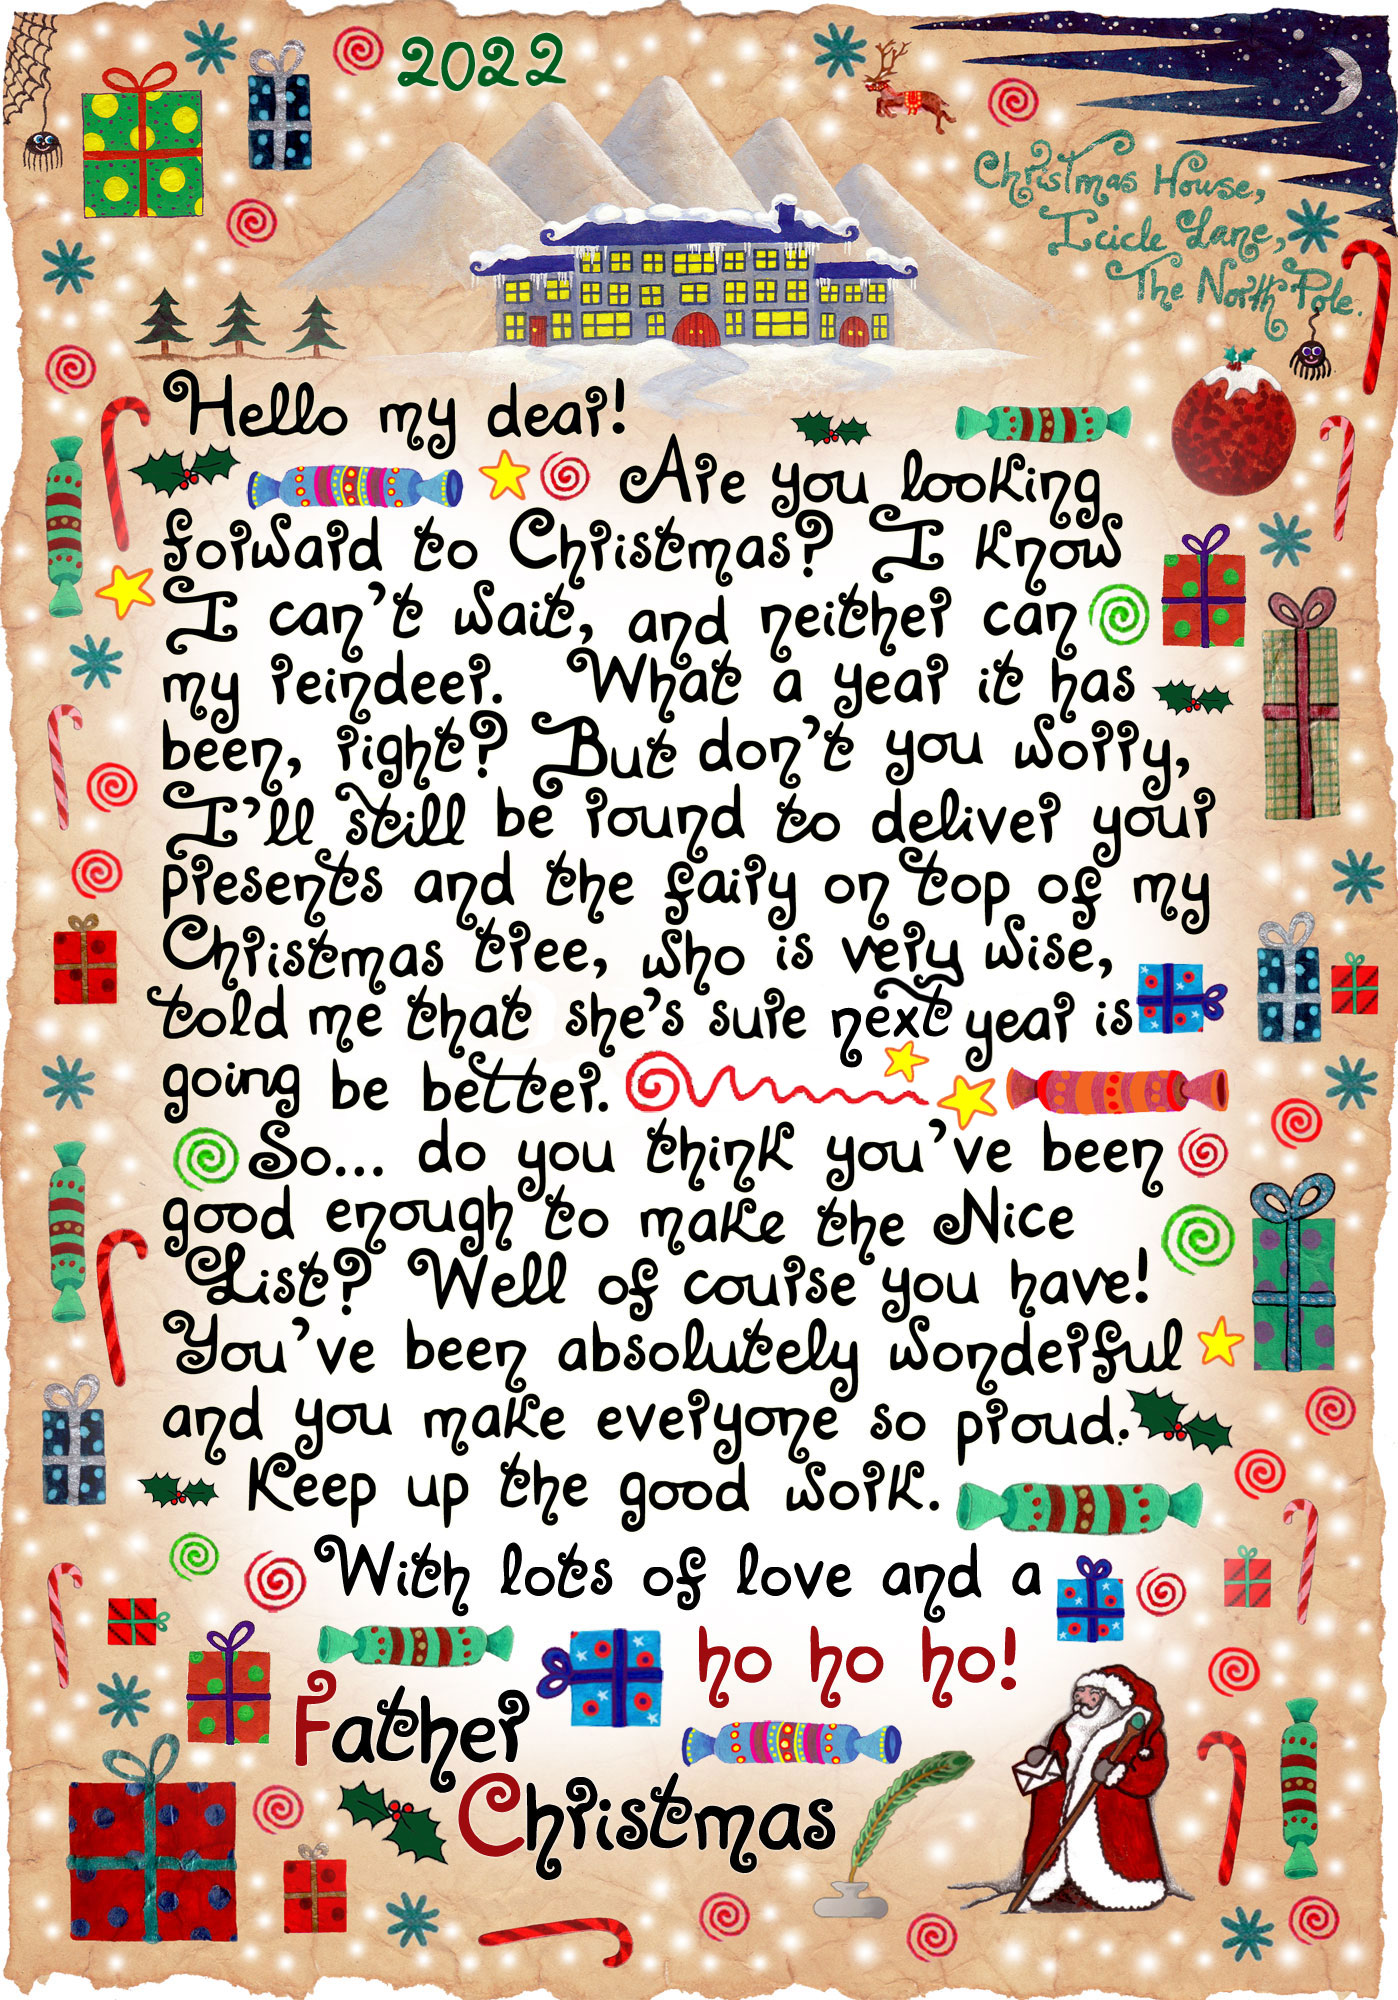 2022
Christmas House,
Icicle Lane,
The North Pole.
Hello my dear!
Are you looking
forward to Christmas? I know
I can't wait, and neither can
my reindeer. What a year it has
been, right? But don't you worry,
I'll still be round to deliver your
presents and the fairy on top of my
Christmas tree, who is very wise,
told me that she's sure next year is
going be better.
So... do you think you've been
good enough to make the Nice
List? Well of course you have!
You've been absolutely wonderful
and you make everyone so proud.
Keep up the good work.
With lots of love and a
ho ho ho!
Father
Christmas